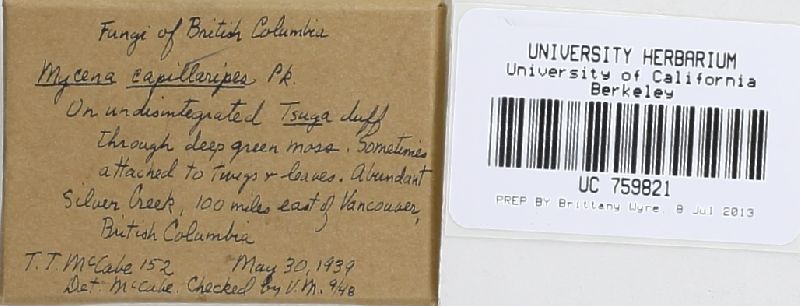 Fungi of British Columbia
Mycena capillaripes Pk.
On undisintegrated Tsuga duff
through deep green moss. Sometimes
attached to twigs & leaves. Abundant
Silver Creek, 100 miles east of Vancouver,
British Columbia
T.T. McCabe 152 May 30, 1939
Det. McCabe. Checked by V.M. 9/48
UNIVERSITY HERBARIUM
University of California
Berkeley
UC 759821
PREP BY Brittany Wyre, 8 Jul 2013